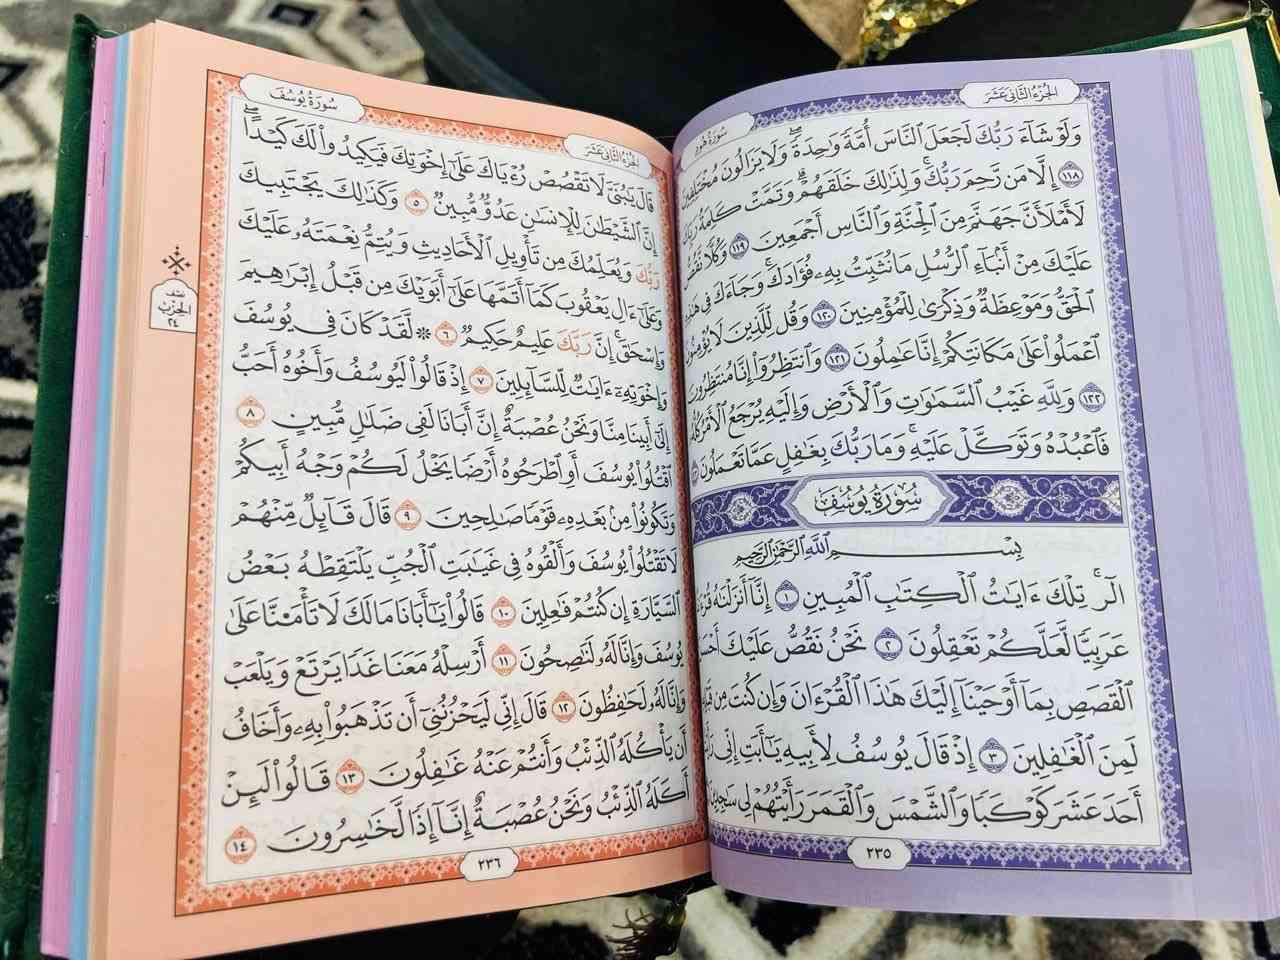 الجزء الثاني عشر
سورة هود
وَلَوْ شَآءَ رَبُّكَ لَجَعَلَ ٱلنَّاسَ أُمَّةً وَٰحِدَةً ۖ وَلَا يَزَالُونَ مُخْتَلِفِينَ
١١٨ إِلَّا مَن رَّحِمَ رَبُّكَ ۚ وَلِذَٰلِكَ خَلَقَهُمْ ۗ وَتَمَّتْ كَلِمَةُ رَبِّكَ
لَأَمْلَأَنَّ جَهَنَّمَ مِنَ ٱلْجِنَّةِ وَٱلنَّاسِ أَجْمَعِينَ ١١٩ وَكُلًّا نَّقُصُّ
عَلَيْكَ مِنْ أَنۢبَآءِ ٱلرُّسُلِ مَا نُثَبِّتُ بِهِۦ فُؤَادَكَ ۚ وَجَآءَكَ فِى هَٰذِهِ
ٱلْحَقُّ وَمَوْعِظَةٌ وَذِكْرَىٰ لِلْمُؤْمِنِينَ ١٢٠ وَقُل لِّلَّذِينَ لَا يُؤْمِنُونَ
ٱعْمَلُوا۟ عَلَىٰ مَكَانَتِكُمْ إِنَّا عَٰمِلُونَ ١٢١ وَٱنتَظِرُوٓا۟ إِنَّا مُنتَظِرُونَ
١٢٢ وَلِلَّهِ غَيْبُ ٱلسَّمَٰوَٰتِ وَٱلْأَرْضِ وَإِلَيْهِ يُرْجَعُ ٱلْأَمْرُ كُلُّهُۥ
فَٱعْبُدْهُ وَتَوَكَّلْ عَلَيْهِ ۚ وَمَا رَبُّكَ بِغَٰفِلٍ عَمَّا تَعْمَلُونَ
سُورَةُ يُوسُفَ
بِسْمِ ٱللَّهِ ٱلرَّحْمَٰنِ ٱلرَّحِيمِ
الٓر ۚ تِلْكَ ءَايَٰتُ ٱلْكِتَٰبِ ٱلْمُبِينِ ١ إِنَّآ أَنزَلْنَٰهُ قُرْءَٰنًا
عَرَبِيًّا لَّعَلَّكُمْ تَعْقِلُونَ ٢ نَحْنُ نَقُصُّ عَلَيْكَ أَحْسَنَ
ٱلْقَصَصِ بِمَآ أَوْحَيْنَآ إِلَيْكَ هَٰذَا ٱلْقُرْءَانَ وَإِن كُنتَ مِن قَبْلِهِۦ
لَمِنَ ٱلْغَٰفِلِينَ ٣ إِذْ قَالَ يُوسُفُ لِأَبِيهِ يَٰٓأَبَتِ إِنِّى رَأَيْتُ
أَحَدَ عَشَرَ كَوْكَبًا وَٱلشَّمْسَ وَٱلْقَمَرَ رَأَيْتُهُمْ لِى سَٰجِدِينَ
٢٣٥
الجزء الثاني عشر
سورة يوسف
قَالَ يَٰبُنَىَّ لَا تَقْصُصْ رُءْيَاكَ عَلَىٰٓ إِخْوَتِكَ فَيَكِيدُوا۟ لَكَ كَيْدًا ۖ
إِنَّ ٱلشَّيْطَٰنَ لِلْإِنسَٰنِ عَدُوٌّ مُّبِينٌ ٥ وَكَذَٰلِكَ يَجْتَبِيكَ
رَبُّكَ وَيُعَلِّمُكَ مِن تَأْوِيلِ ٱلْأَحَادِيثِ وَيُتِمُّ نِعْمَتَهُۥ عَلَيْكَ
وَعَلَىٰٓ ءَالِ يَعْقُوبَ كَمَآ أَتَمَّهَا عَلَىٰٓ أَبَوَيْكَ مِن قَبْلُ إِبْرَٰهِيمَ
وَإِسْحَٰقَ ۚ إِنَّ رَبَّكَ عَلِيمٌ حَكِيمٌ ٦ ۞ لَّقَدْ كَانَ فِى يُوسُفَ
وَإِخْوَتِهِۦٓ ءَايَٰتٌ لِّلسَّآئِلِينَ ٧ إِذْ قَالُوا۟ لَيُوسُفُ وَأَخُوهُ أَحَبُّ
إِلَىٰٓ أَبِينَا مِنَّا وَنَحْنُ عُصْبَةٌ إِنَّ أَبَانَا لَفِى ضَلَٰلٍ مُّبِينٍ ٨
ٱقْتُلُوا۟ يُوسُفَ أَوِ ٱطْرَحُوهُ أَرْضًا يَخْلُ لَكُمْ وَجْهُ أَبِيكُمْ
وَتَكُونُوا۟ مِنۢ بَعْدِهِۦ قَوْمًا صَٰلِحِينَ ٩ قَالَ قَآئِلٌ مِّنْهُمْ
لَا تَقْتُلُوا۟ يُوسُفَ وَأَلْقُوهُ فِى غَيَٰبَتِ ٱلْجُبِّ يَلْتَقِطْهُ بَعْضُ
ٱلسَّيَّارَةِ إِن كُنتُمْ فَٰعِلِينَ ١٠ قَالُوا۟ يَٰٓأَبَانَا مَا لَكَ لَا تَأْمَ۫نَّا عَلَىٰ
يُوسُفَ وَإِنَّا لَهُۥ لَنَٰصِحُونَ ١١ أَرْسِلْهُ مَعَنَا غَدًا يَرْتَعْ وَيَلْعَبْ
وَإِنَّا لَهُۥ لَحَٰفِظُونَ ١٢ قَالَ إِنِّى لَيَحْزُنُنِىٓ أَن تَذْهَبُوا۟ بِهِۦ وَأَخَافُ
أَن يَأْكُلَهُ ٱلذِّئْبُ وَأَنتُمْ عَنْهُ غَٰفِلُونَ ١٣ قَالُوا۟ لَئِنْ
أَكَلَهُ ٱلذِّئْبُ وَنَحْنُ عُصْبَةٌ إِنَّآ إِذًا لَّخَٰسِرُونَ ١٤
٢٣٦
نصف
الحزب
٢٤